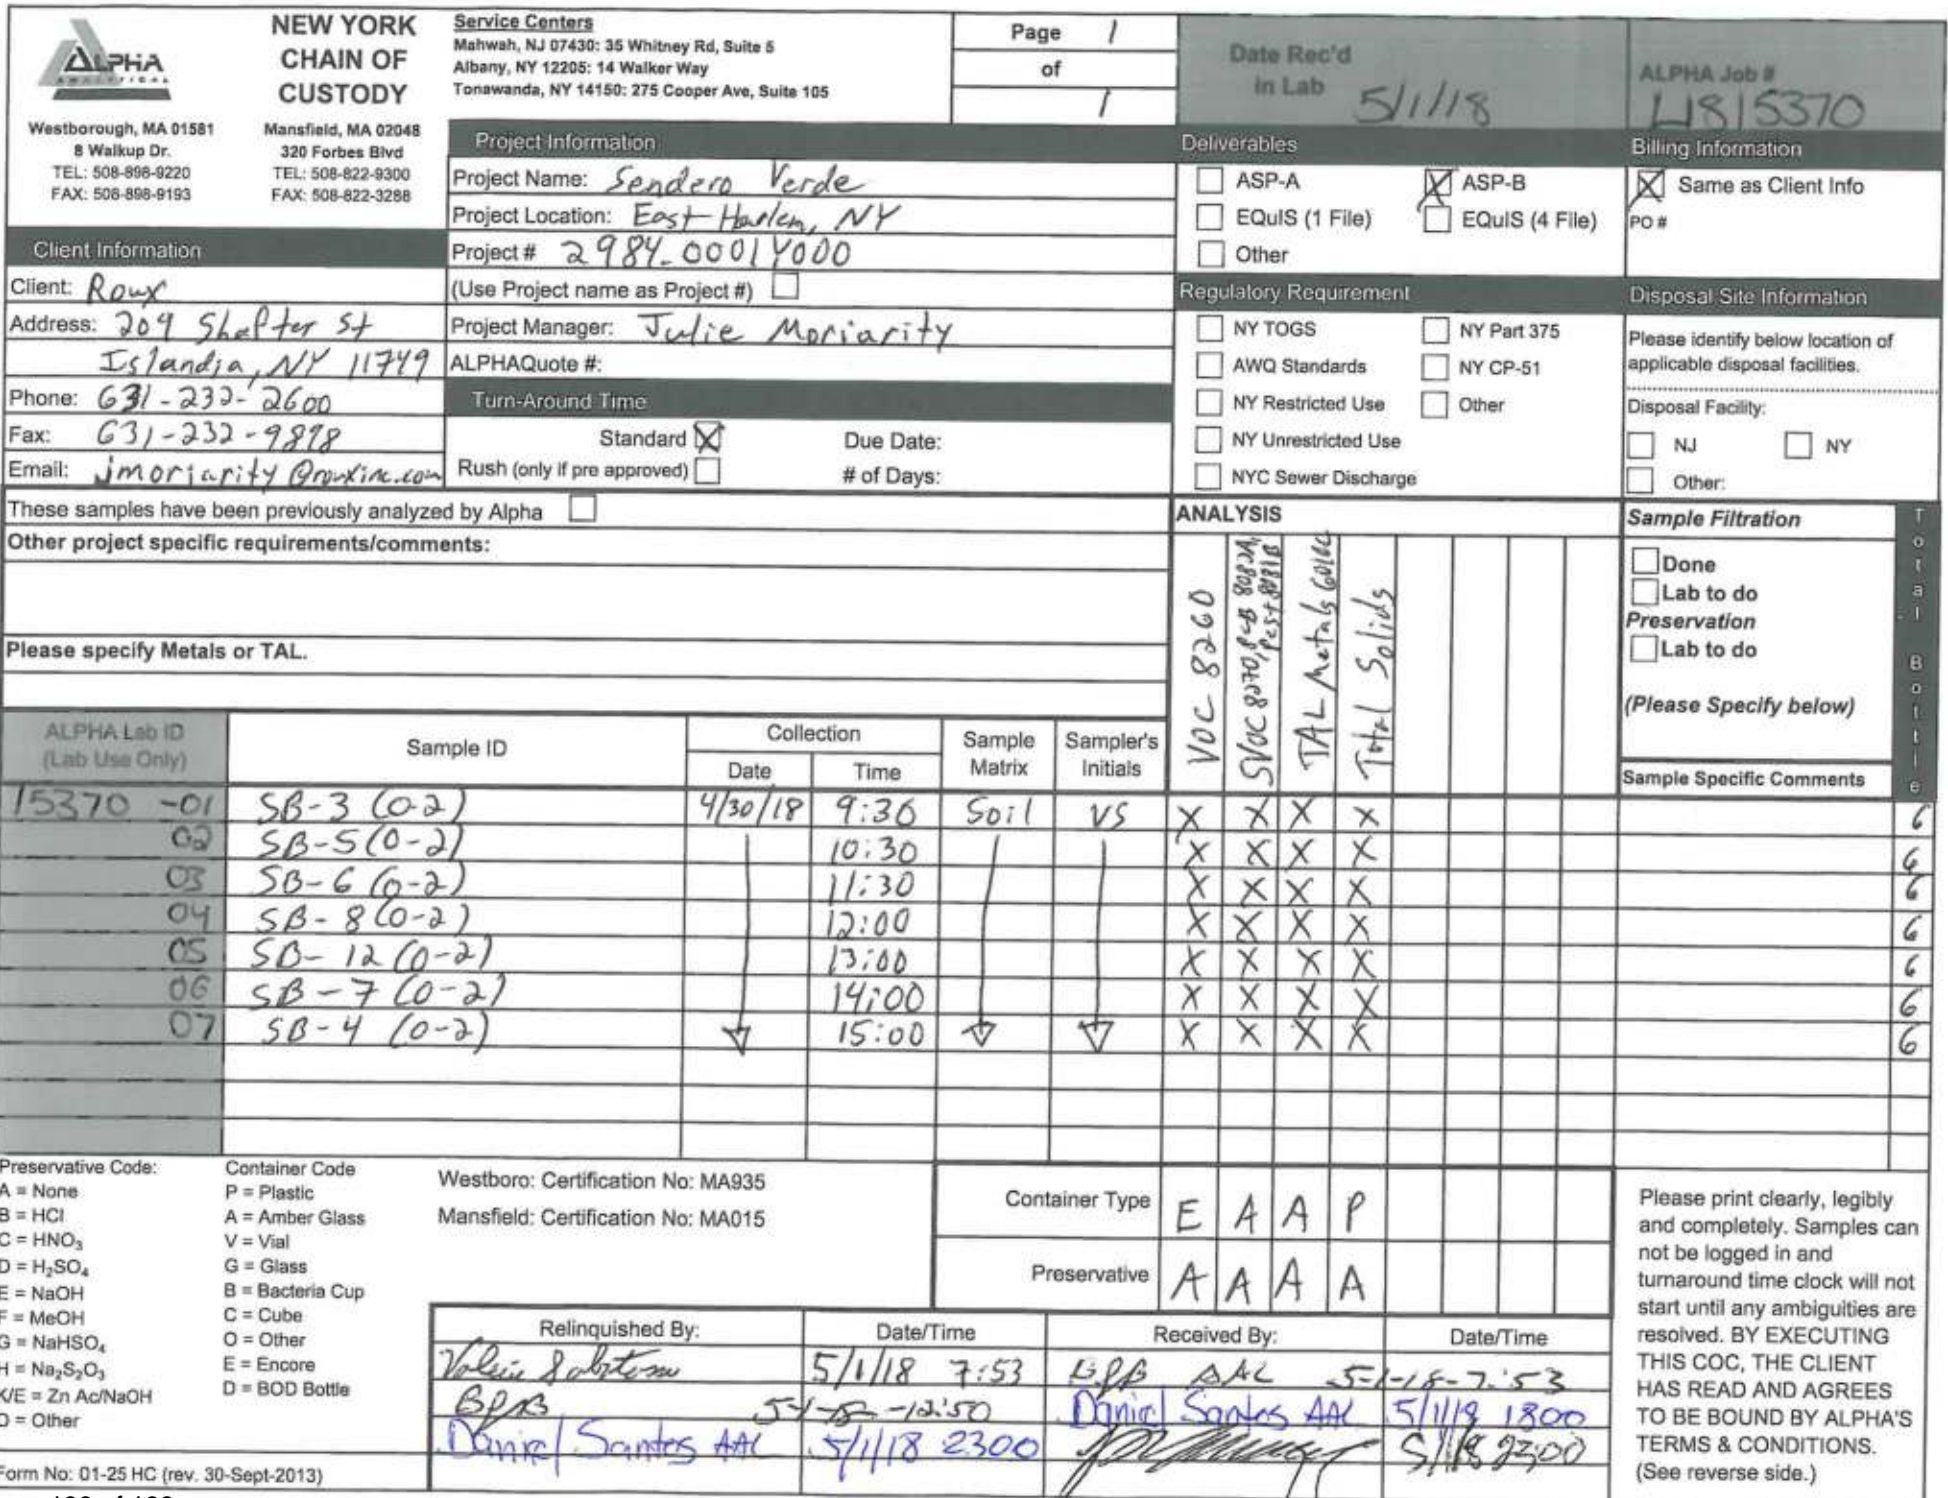 ALPHA
ANALYTICAL
Westborough, MA 01581
8 Walkup Dr.
TEL: 508-898-9220
FAX: 508-898-9193
NEW YORK
CHAIN OF
CUSTODY
Mansfield, MA 02048
320 Forbes Blvd
TEL: 508-822-9300
FAX: 508-822-3288
Service Centers
Mahwah, NJ 07430: 35 Whitney Rd, Suite 5
Albany, NY 12205: 14 Walker Way
Tonawanda, NY 14150: 275 Cooper Ave, Suite 105
Page 1
of
1
Date Rec'd
in Lab 5/1/18
ALPHA Job #
L1815370
Client Information
Client: Roux
Address: 209 Shafter St
Islandia, NY 11749
Phone: 631-232-2600
Fax: 631-232-9898
Email: jmoriarity@rouxinc.com
Project Information
Project Name: Sendero Verde
Project Location: East Harlem, NY
Project # 2984.0001Y000
(Use Project name as Project #)
Project Manager: Julie Moriarity
ALPHAQuote #:
Turn-Around Time
Standard X Due Date:
Rush (only if pre approved) # of Days:
Deliverables
ASP-A X ASP-B
EQuIS (1 File) EQuIS (4 File)
Other
Regulatory Requirement
NY TOGS NY Part 375
AWQ Standards NY CP-51
NY Restricted Use Other
NY Unrestricted Use
NYC Sewer Discharge
Billing Information
X Same as Client Info
PO #
Disposal Site Information
Please identify below location of
applicable disposal facilities.
Disposal Facility:
NJ NY
Other:
These samples have been previously analyzed by Alpha
Other project specific requirements/comments:
Please specify Metals or TAL.
ANALYSIS
VOC 8260
SVOC 8270, PCB 8082A,
Pest 8081B
TAL Metals 6010C
Total Solids
Sample Filtration
Done
Lab to do
Preservation
Lab to do
(Please Specify below)
Total Bottle
ALPHA Lab ID
(Lab Use Only)
Sample ID
Collection
Date Time
Sample
Matrix
Sampler's
Initials
Sample Specific Comments
15370 -01 SB-3 (0-2) 4/30/18 9:30 Soil VS X X X X 6
02 SB-5 (0-2) 10:30 X X X X 6
03 SB-6 (0-2) 11:30 X X X X 6
04 SB-8 (0-2) 12:00 X X X X 6
05 SB-12 (0-2) 13:00 X X X X 6
06 SB-7 (0-2) 14:00 X X X X 6
07 SB-4 (0-2) 15:00 X X X X 6
Preservative Code:
A = None
B = HCl
C = HNO₃
D = H₂SO₄
E = NaOH
F = MeOH
G = NaHSO₄
H = Na₂S₂O₃
K/E = Zn Ac/NaOH
O = Other
Container Code
P = Plastic
A = Amber Glass
V = Vial
G = Glass
B = Bacteria Cup
C = Cube
O = Other
E = Encore
D = BOD Bottle
Westboro: Certification No: MA935
Mansfield: Certification No: MA015
Container Type E A A P
Preservative A A A A
Relinquished By: Date/Time Received By: Date/Time
5/1/18 7:53 BPB AAL 5-1-18-7:53
BPB 5-1-18-12:50 Daniel Santos AAL 5/1/18 1800
Daniel Santos AAL 5/1/18 2300 5/1/18 23:00
Please print clearly, legibly
and completely. Samples can
not be logged in and
turnaround time clock will not
start until any ambiguities are
resolved. BY EXECUTING
THIS COC, THE CLIENT
HAS READ AND AGREES
TO BE BOUND BY ALPHA'S
TERMS & CONDITIONS.
(See reverse side.)
Form No: 01-25 HC (rev. 30-Sept-2013)